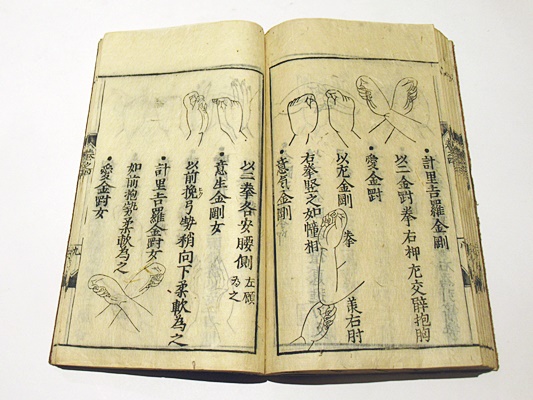 ・計里吉羅金剛
以二金對拳右押左交臂抱胸
・愛金對
以左金對拳
右拳竪之如幢相
右肘
金剛
以二拳各安腰側 左顧為之
・意生金剛女
以前挽弓勢稍向下柔軟為之
・計里吉羅金對女
如前抱勢柔軟為之
・愛金對女